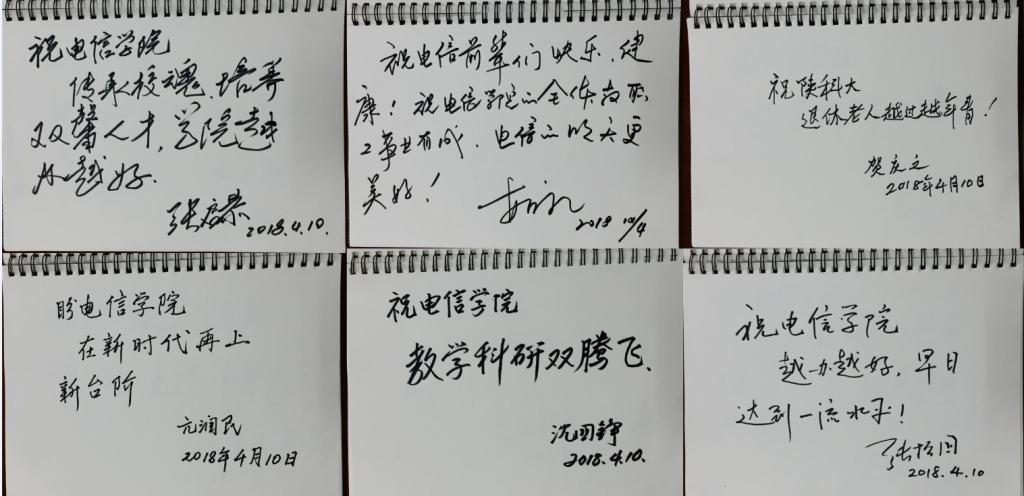 祝电信学院
传承校魂、培养
双馨人才,学院越
办越好.
2018.4.10.
祝电信前辈们快乐、健
康!祝电信学院的全体教职
工事业有成、电信的明天更
美好!
2018 10/4
祝陕科大
退休老人越过越年青!
贺庆之
2018年4月10日
盼电信学院
在新时代再上
新台阶
亢润民
2018年4月10日
祝电信学院
教学科研双腾飞.
沈四铮
2018.4.10.
祝电信学院
越办越好,早日
达到一流水平!
2018.4.10